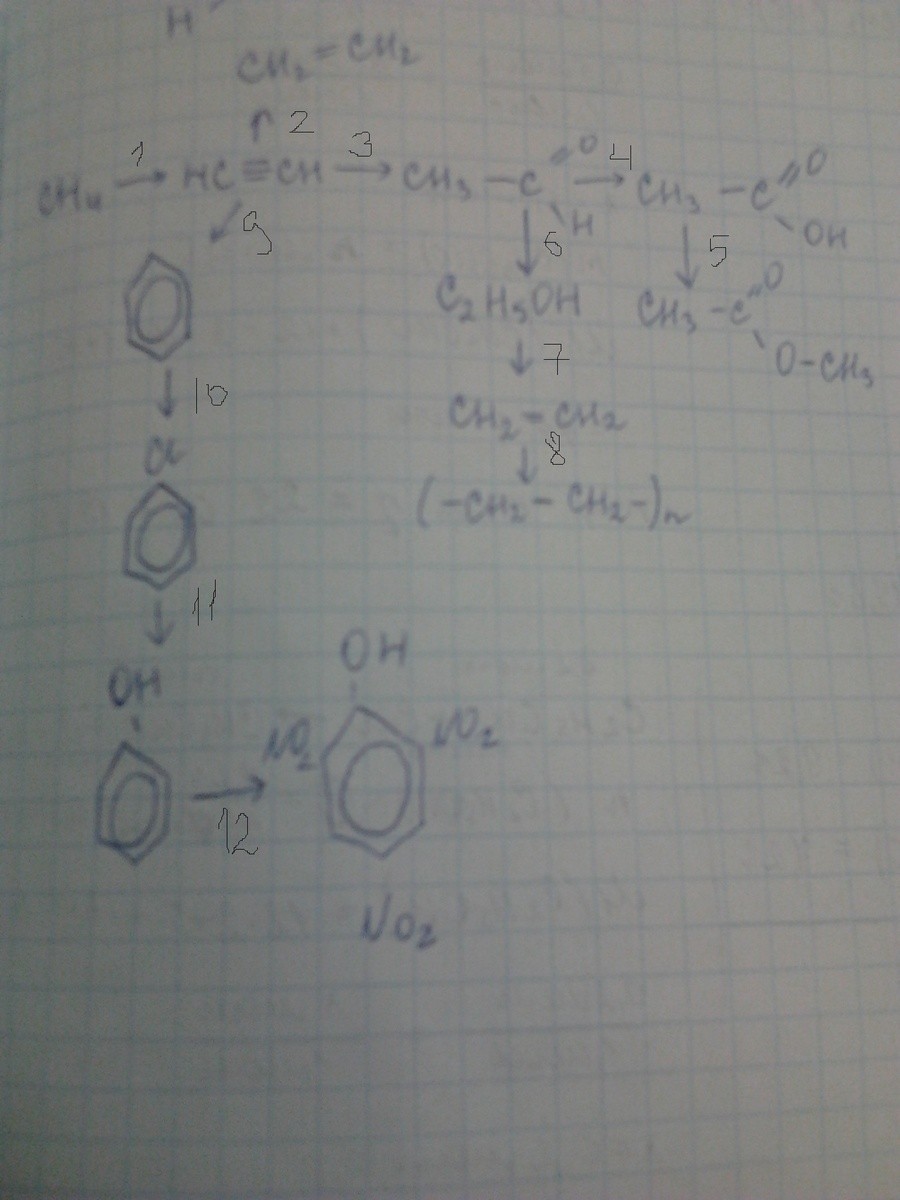 H
CH₂=CH₂
2
CH₄ 1→ HC≡CH 3→ CH₃-C=O H 4→ CH₃-C=O OH
9
6
5
C₂H₅OH
CH₃-C=O O-CH₃
7
10
CH₂-CH₂
8
Cl
(-CH₂-CH₂-)n
11
OH
OH
NO₂
NO₂
12
NO₂